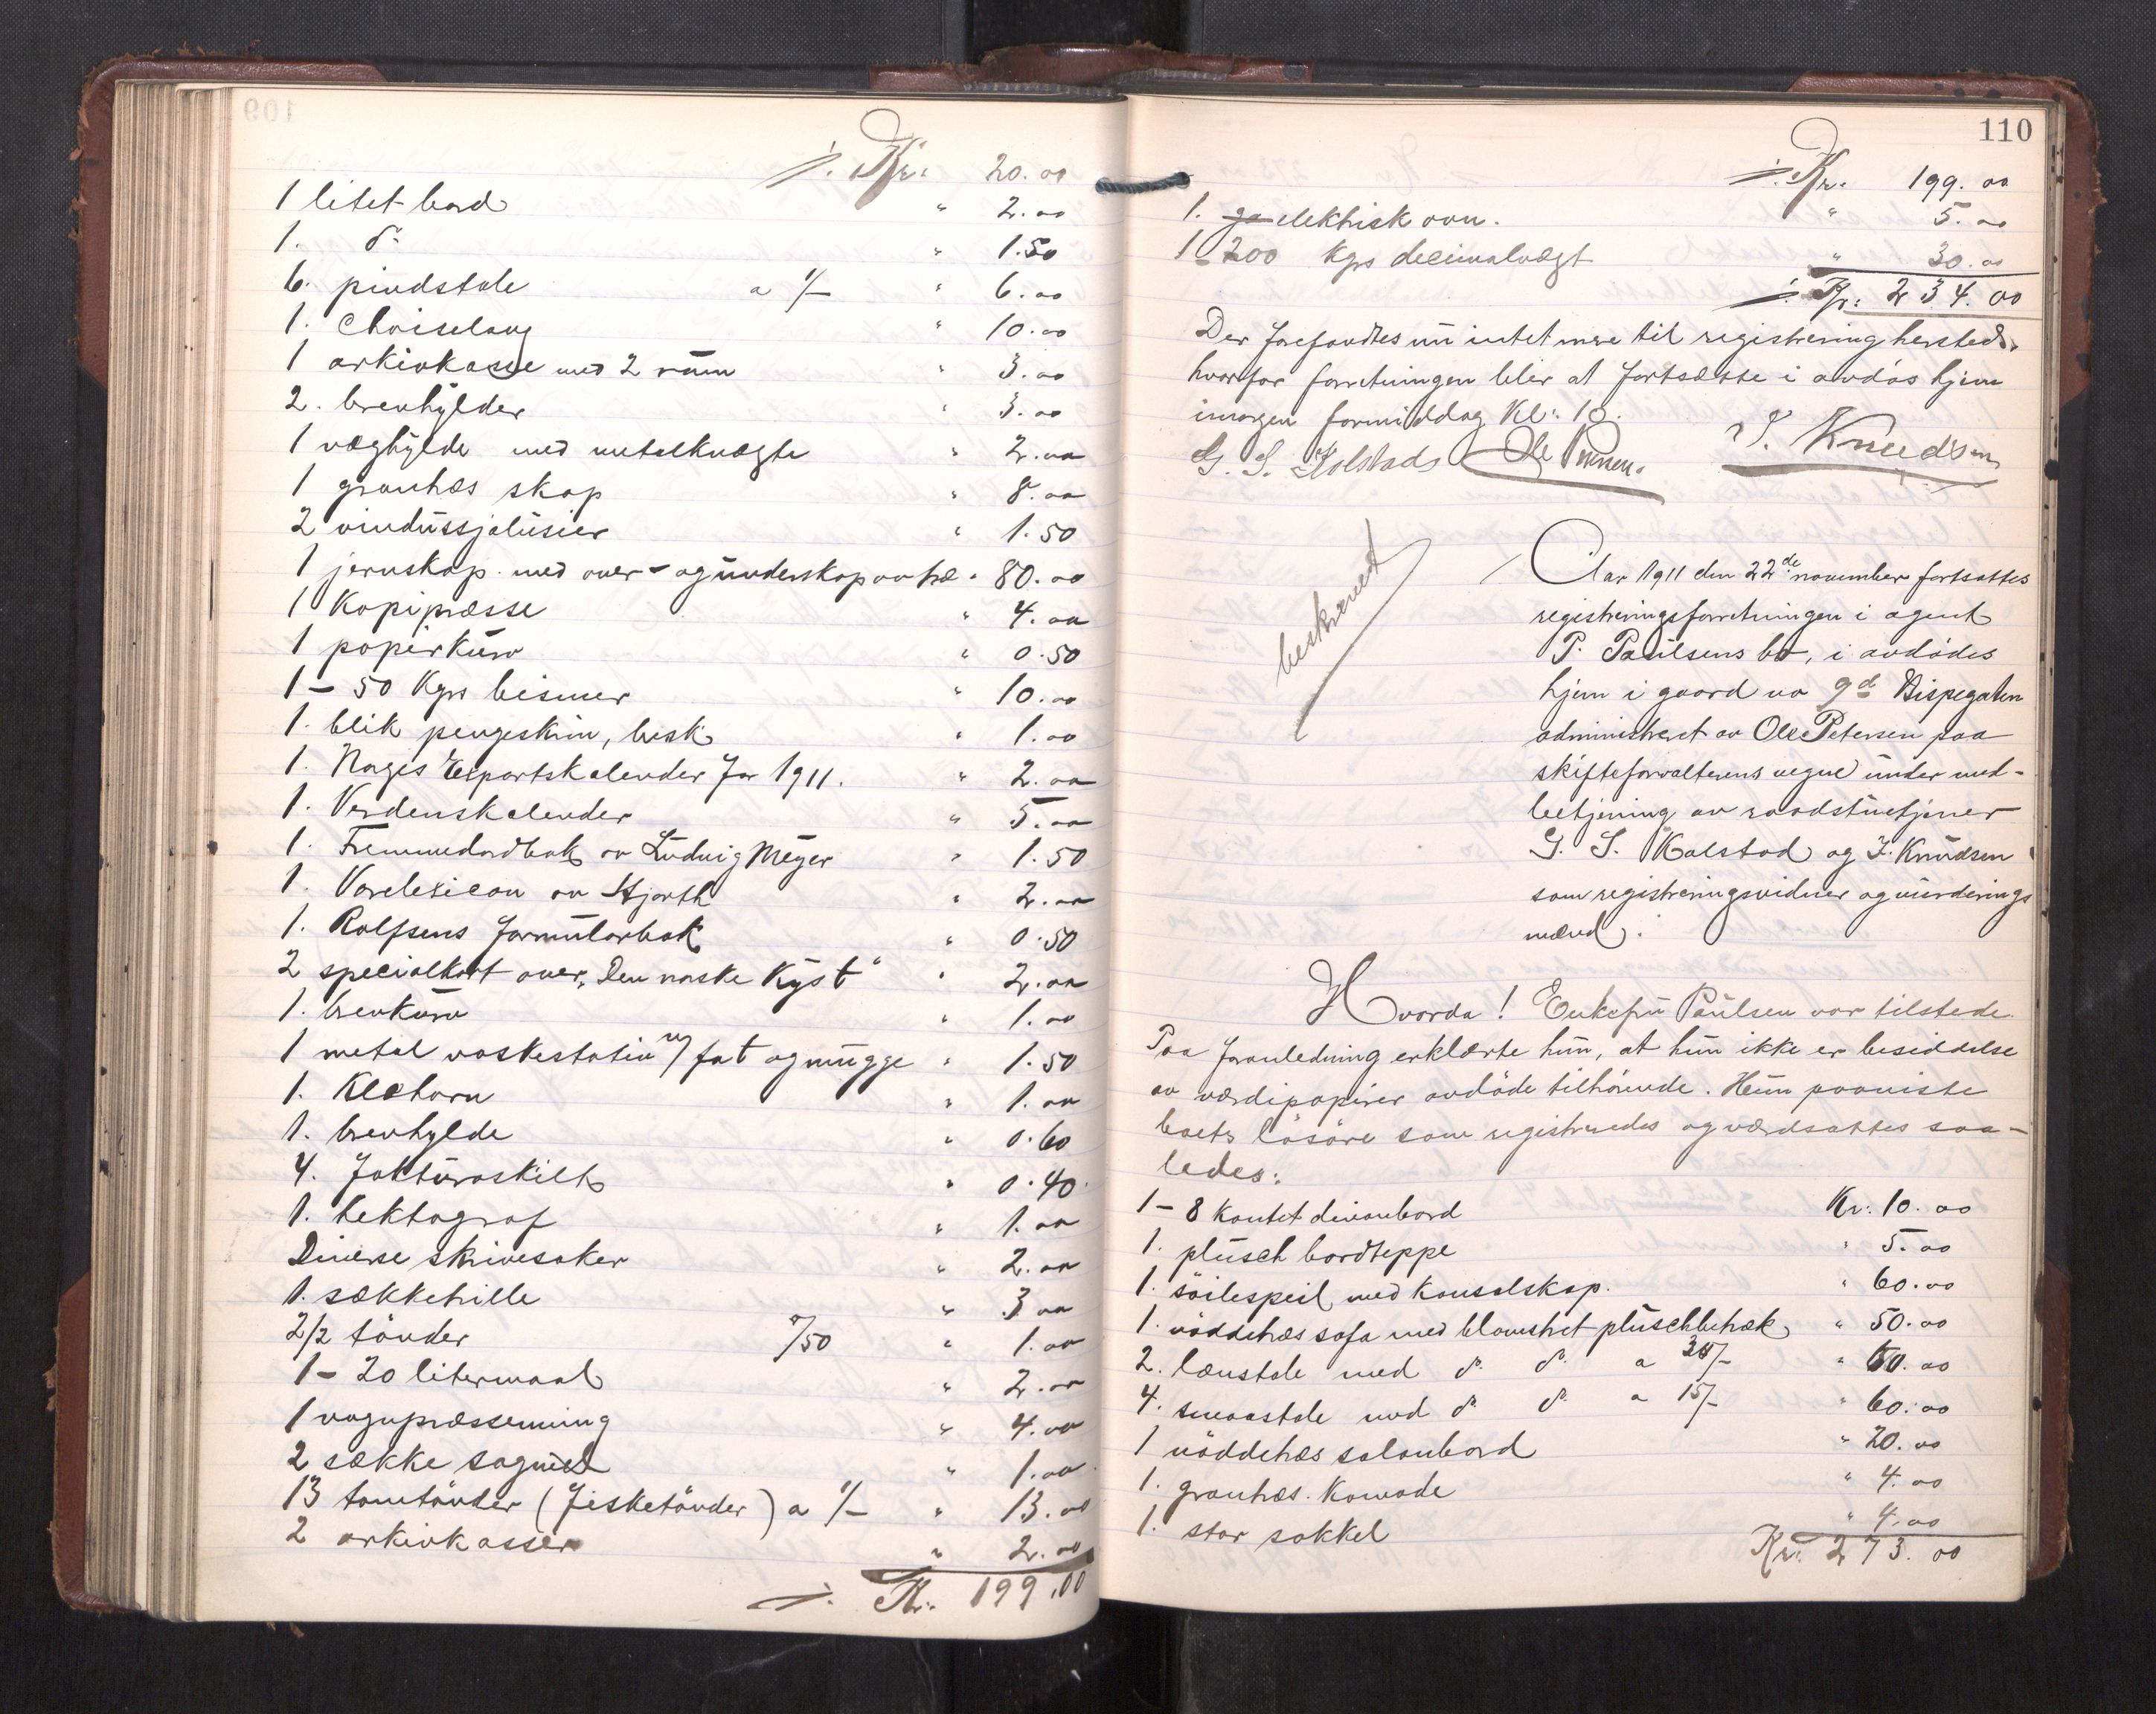 ÷ Kr. 20.00
1 litet bord " 2.00
1. do " 1.50
6. pindstole a 1/- " 6.00
1. Chaiselong " 10.00
1 arkivkasse med 2 rům " 3.00
2. brevhylder " 3.00
1 væghylde med metalknægte " 2.00
1 grantræs skap " 8.00
2 vindůssjalůsier " 1.50
1 jernskap med over- og ůnderskap av træ " 80.00
1 Kopipresse " 4.00
1 papirkůrv " 0.50
1 – 50 Kgrs bismer " 10.00
1. blik pengeskrin, besk. " 1.00
1. Norges Exportskalender for 1911. " 2.00
1. Verdenskalender " 5.00
1. Fremmedordbok av Lůdvig Meyer " 1.50
1. Varelexicon av Hjorth " 2.00
1. Rolfsens formůlarbok " 0.50
2 specialkart over „Den norske Kyst" " 2.00
1. brevkůrv " 1.00
1 metal vaskestativ m/ fat og můgge " 1.50
1. Kleshorn " 1.00
1. brevhylde " 0.60
4. faktůraskilt " 0.40
1. hektograf " 1.00
Diverse skrivesaker " 2.00
1. sækketrille " 3.00
2/2 tönder a/50 " 1.00
1 – 20 litermaal " 2.00
1 vognpræssenning " 4.00
2 sække sagmel " 1.00
13 tomtönder (fisketönder) a 1/- " 13.00
2 arkivkasser " 2.00
÷ Kr. 199.00
110
÷ Kr. 199.00
1. elektrisk ovn. " 5.00
1 – 200 Kgrs decimalvægt " 30.00
÷ Kr. 234.00
Der forefandtes nů intet mere til registrering hersteds,
hvorfor forretningen blir at fortsætte i avdös hjem
imorgen formiddag Kl. 10.
G. S. Kolstad Ole Petersen. J. Knudsen
beskrevet
Aar 1911 den 22de november fortsattes
registreringsforretningen i agent
P. Paůlsens bo, i avdödes
hjem i gaard no 9d Bispegaten
administreret av Ole Petersen paa
skifteforvalterens vegne ůnder med-
betjening av raadstůetjener
G. S. Kolstad og J. Knůdsen
som registreringsvidner og vůrderings
mænd.
Hvorda! Enkefrů Paůlsen var tilstede.
Paa foranledning erklærte hůn, at hůn ikke er besiddelse
av værdipapirer avdöde tilhörende. Hůn paaviste
boets lösöre som registreredes og værdsattes saa-
ledes:
1 – 8 kantet divanbord Kr. 10.00
1. plůsch bordteppe " 5.00
1. söilespeil med konsolskap. " 60.00
1. nöddetræs sofa med blomstret plůschbetræk " 50.00
2. lænstole med do do a 30/- " 60.00
4. smaastole med do do a 15/- " 60.00
1 nöddetræs salonbord " 20.00
1. grantræs. Komode " 4.00
1. stor sokkel " 4.00
Kr. 273.00